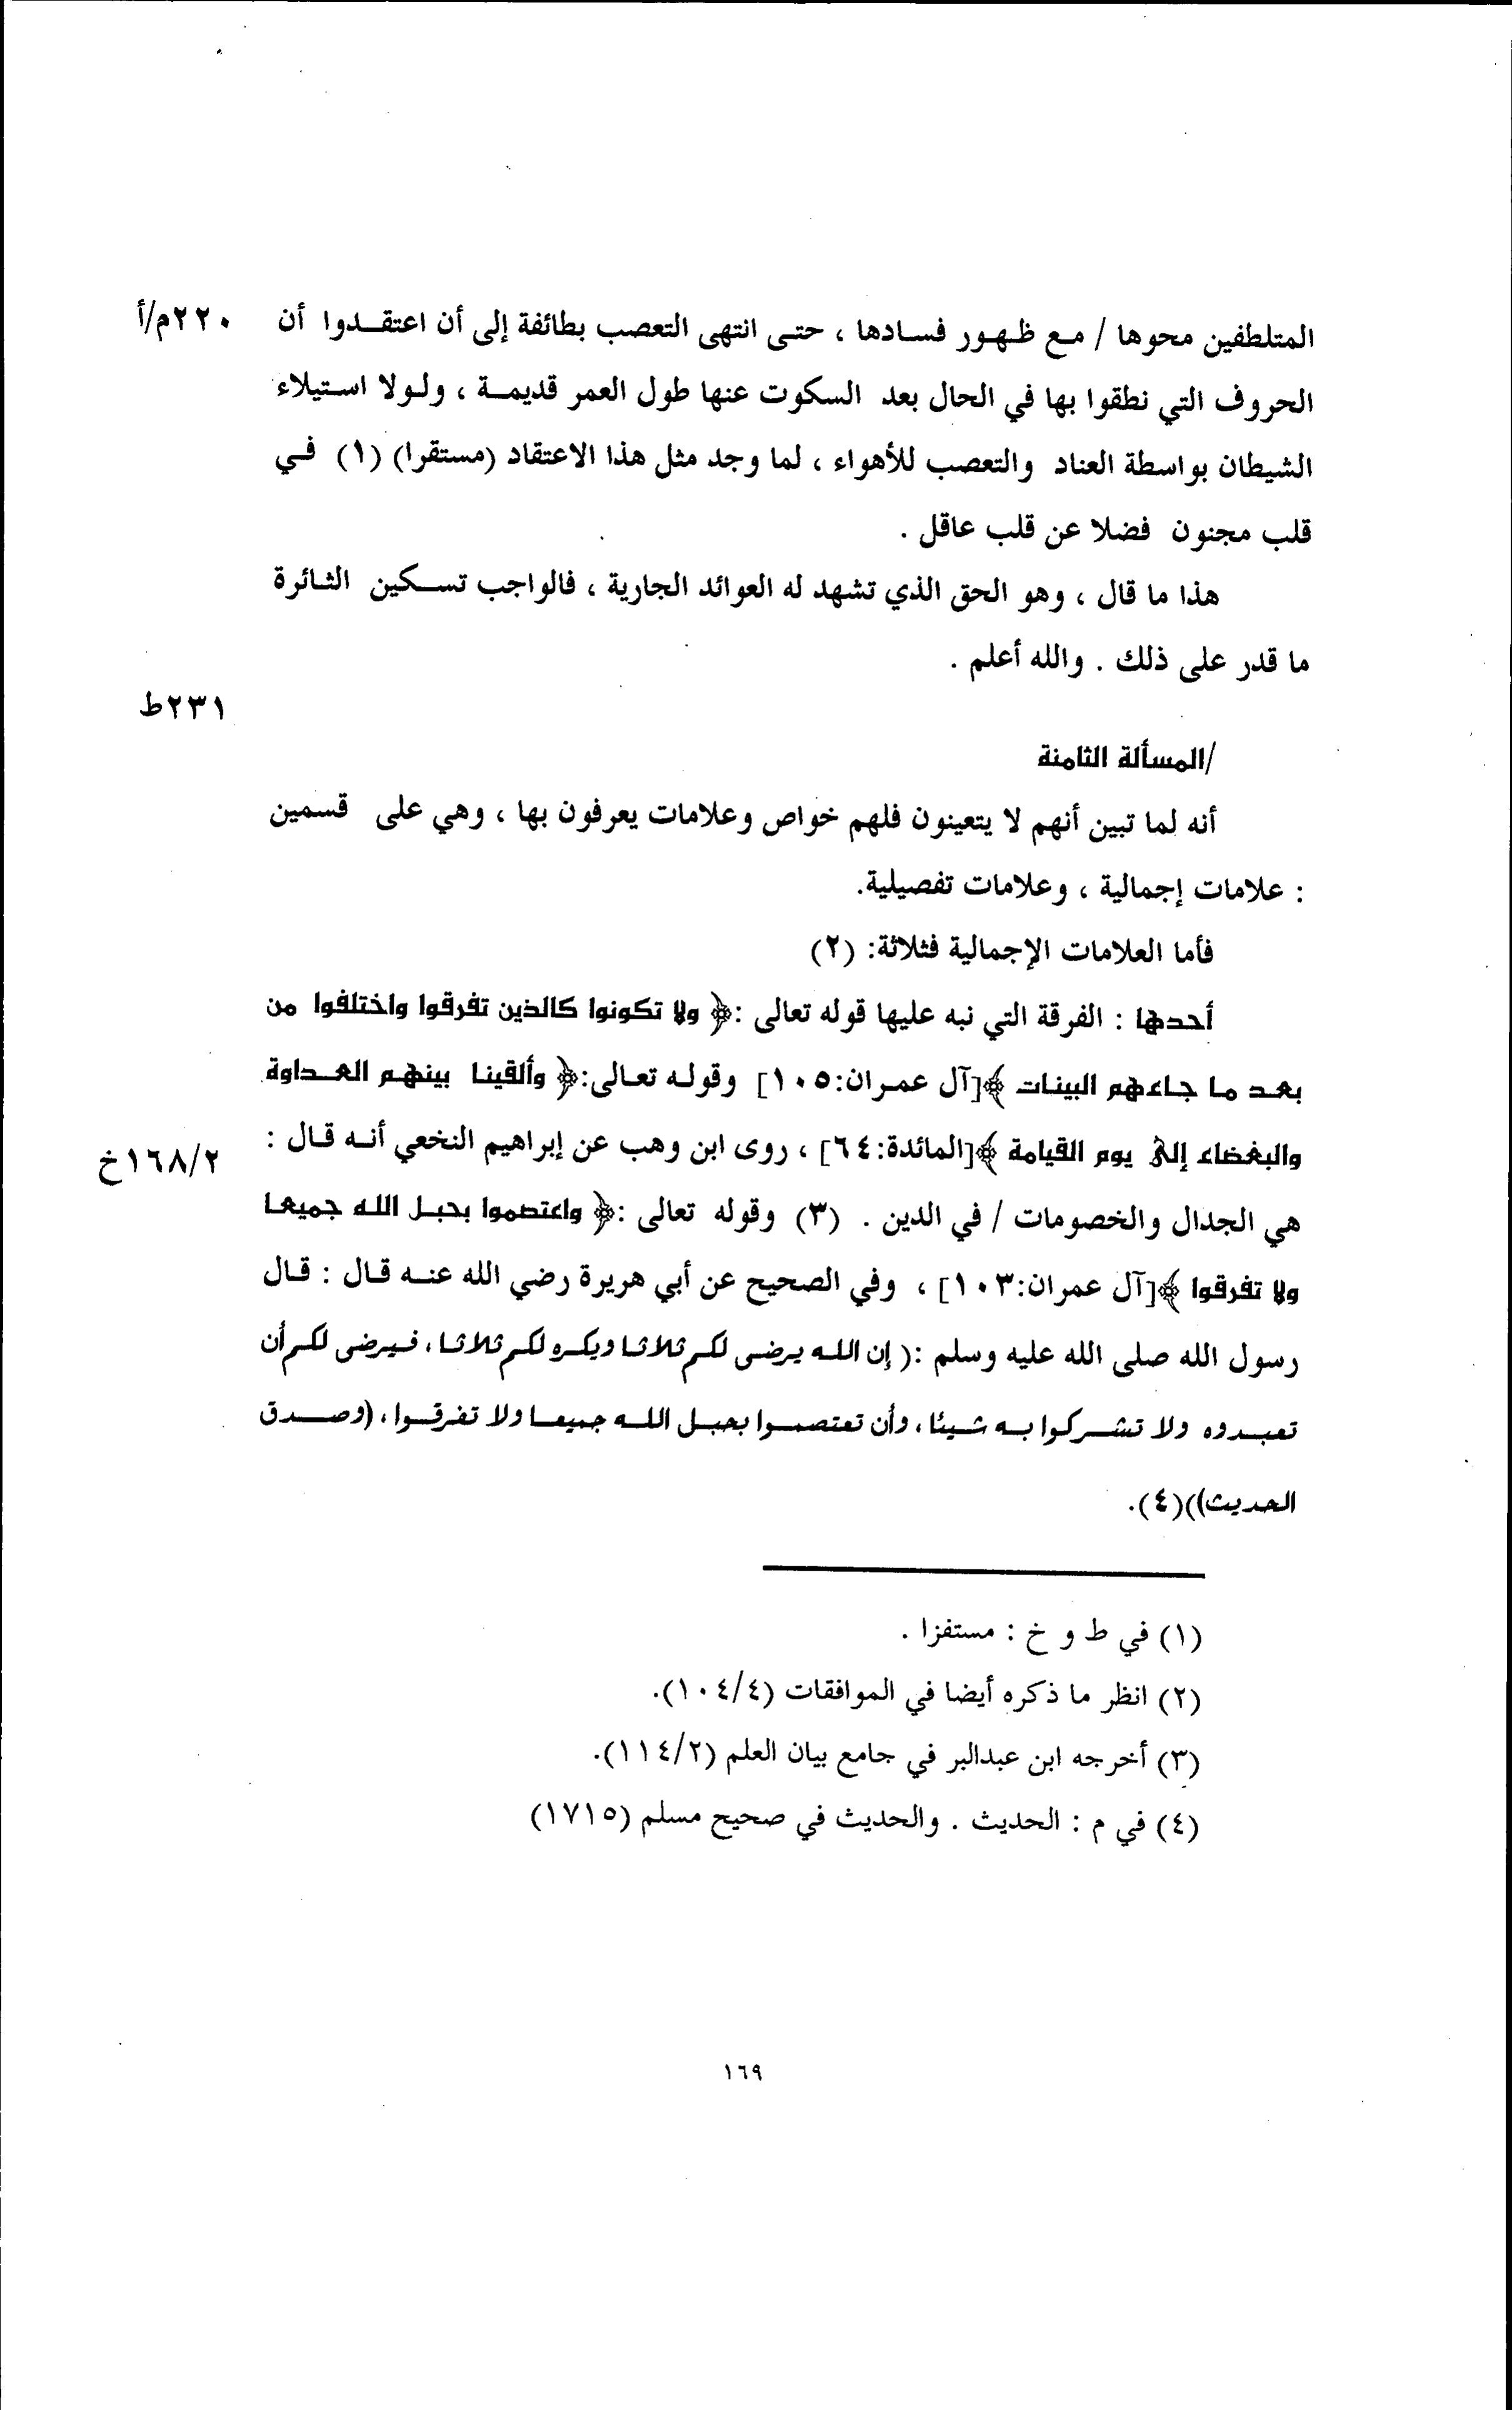 المتلطفين محوها / مع ظهور فسادها ، حتى انتهى التعصب بطائفة إلى أن اعتقدوا أن ٢٢٠م/أ
الحروف التي نطقوا بها في الحال بعد السكوت عنها طول العمر قديمة ، ولولا استيلاء
الشيطان بواسطة العناد والتعصب للأهواء ، لما وجد مثل هذا الاعتقاد (مستقرا) (١) في
قلب مجنون فضلا عن قلب عاقل .
هذا ما قال ، وهو الحق الذي تشهد له العوائد الجارية ، فالواجب تسكين الثائرة
ما قدر على ذلك . والله أعلم .
٢٣١ط
/المسألة الثامنة
أنه لما تبين أنهم لا يتعينون فلهم خواص وعلامات يعرفون بها ، وهي على قسمين
: علامات إجمالية ، وعلامات تفصيلية.
فأما العلامات الإجمالية فثلاثة: (٢)
أحدها : الفرقة التي نبه عليها قوله تعالى :﴿ ولا تكونوا كالذين تفرقوا واختلفوا من
بعد ما جاءهم البينات ﴾[آل عمران:١٠٥] وقوله تعالى:﴿ وألقينا بينهم العداوة
والبغضاء إلى يوم القيامة ﴾[المائدة:٦٤] ، روى ابن وهب عن إبراهيم النخعي أنه قال : ١٦٨/٢خ
هي الجدال والخصومات / في الدين . (٣) وقوله تعالى :﴿ واعتصموا بحبل الله جميعا
ولا تفرقوا ﴾[آل عمران:١٠٣] ، وفي الصحيح عن أبي هريرة رضي الله عنه قال : قال
رسول الله صلى الله عليه وسلم :( إن الله يرضى لكم ثلاثا ويكره لكم ثلاثا، فيرضى لكم أن
تعبدوه ولا تشركوا به شيئا، وأن تعتصموا بحبل الله جميعا ولا تفرقوا، (وصدق
الحديث))(٤).
(١) في ط و خ : مستفزا .
(٢) انظر ما ذكره أيضا في الموافقات (١٠٤/٤).
(٣) أخرجه ابن عبدالبر في جامع بيان العلم (١١٤/٢).
(٤) في م : الحديث . والحديث في صحيح مسلم (١٧١٥)
١٦٩